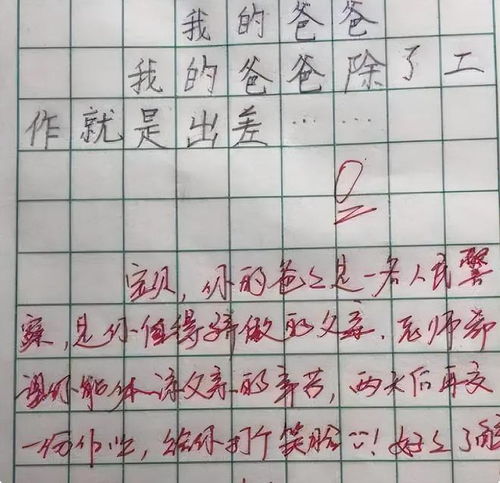 我的爸爸
我的爸爸除了工
作就是出差……
0
宝贝，你的爸爸是一名人民警
察，是你值得骄傲的父亲。老师希
望你能体谅父亲的辛苦，两天后再交
一份作业，给你打个笑脸！好好了解